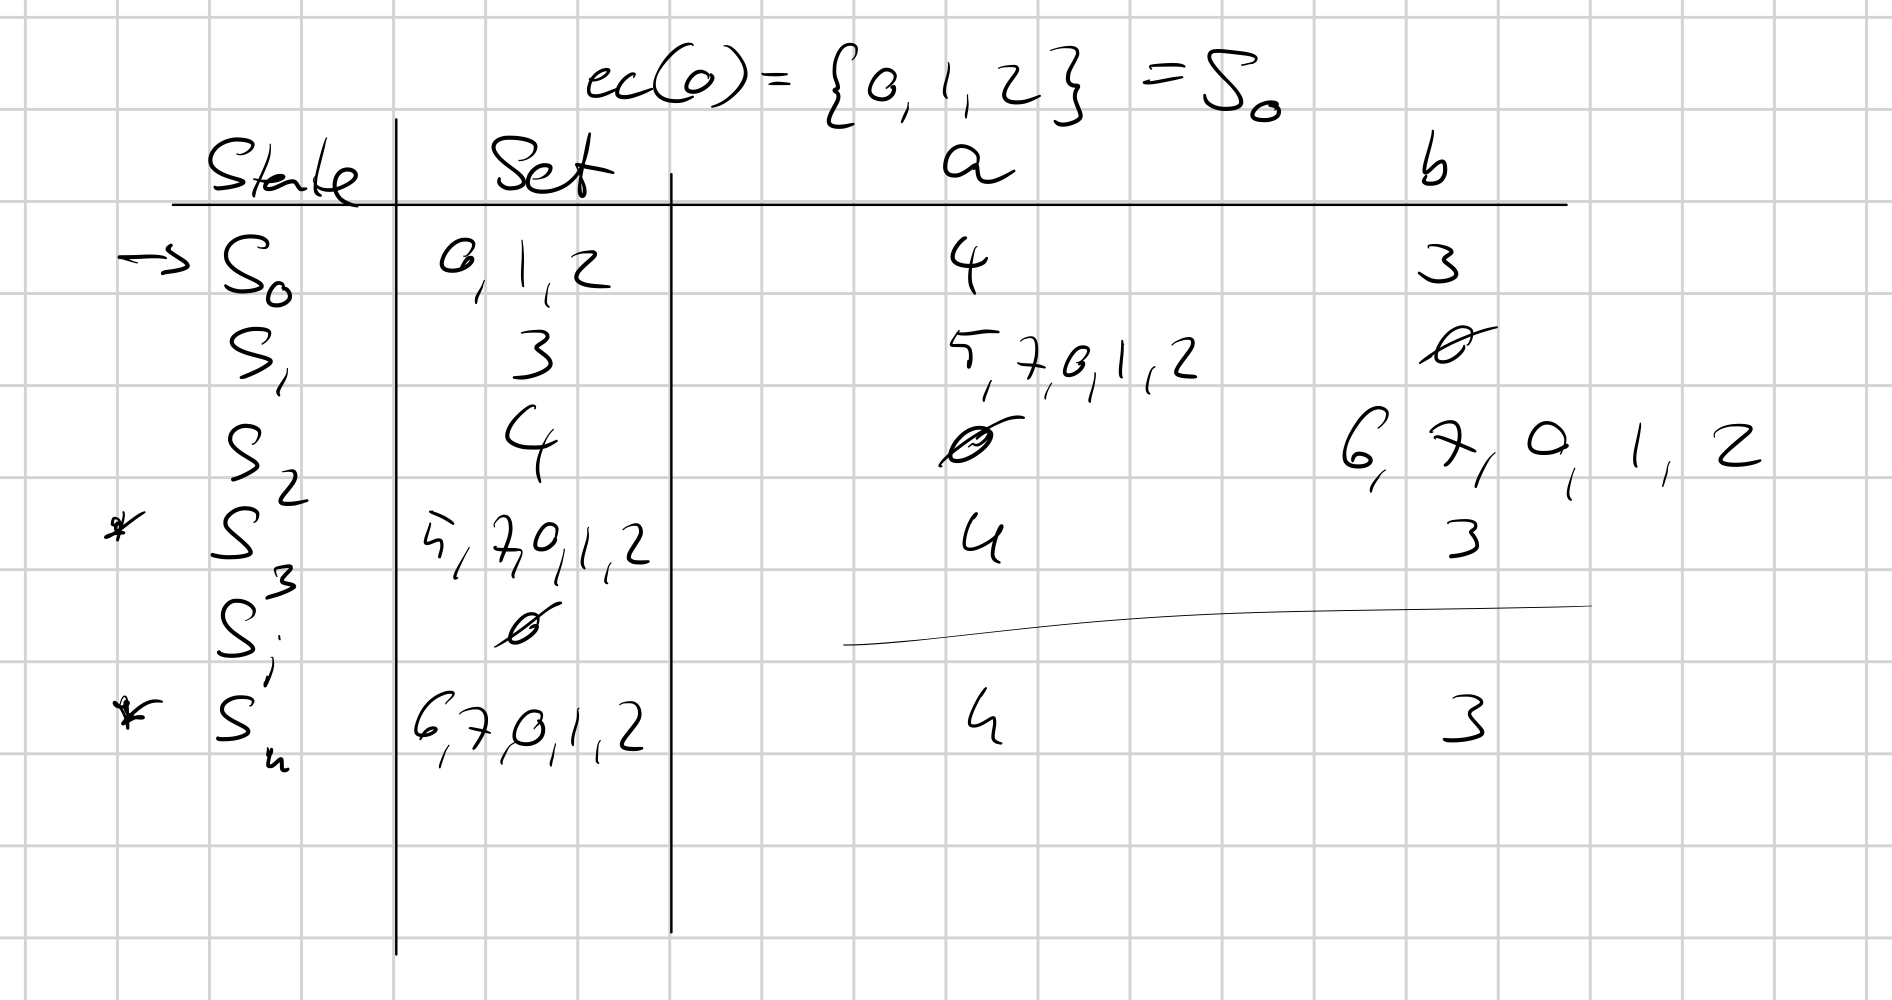 ec(0) = {0, 1, 2} = S₀
State Set a b
→ S₀ 0, 1, 2 4 3
S₁ 3 5, 7, 0, 1, 2 ∅
S₂ 4 ∅ 6, 7, 0, 1, 2
* S₃ 5, 7, 0, 1, 2 4 3
Sⱼ ∅
* S₄ 6, 7, 0, 1, 2 4 3